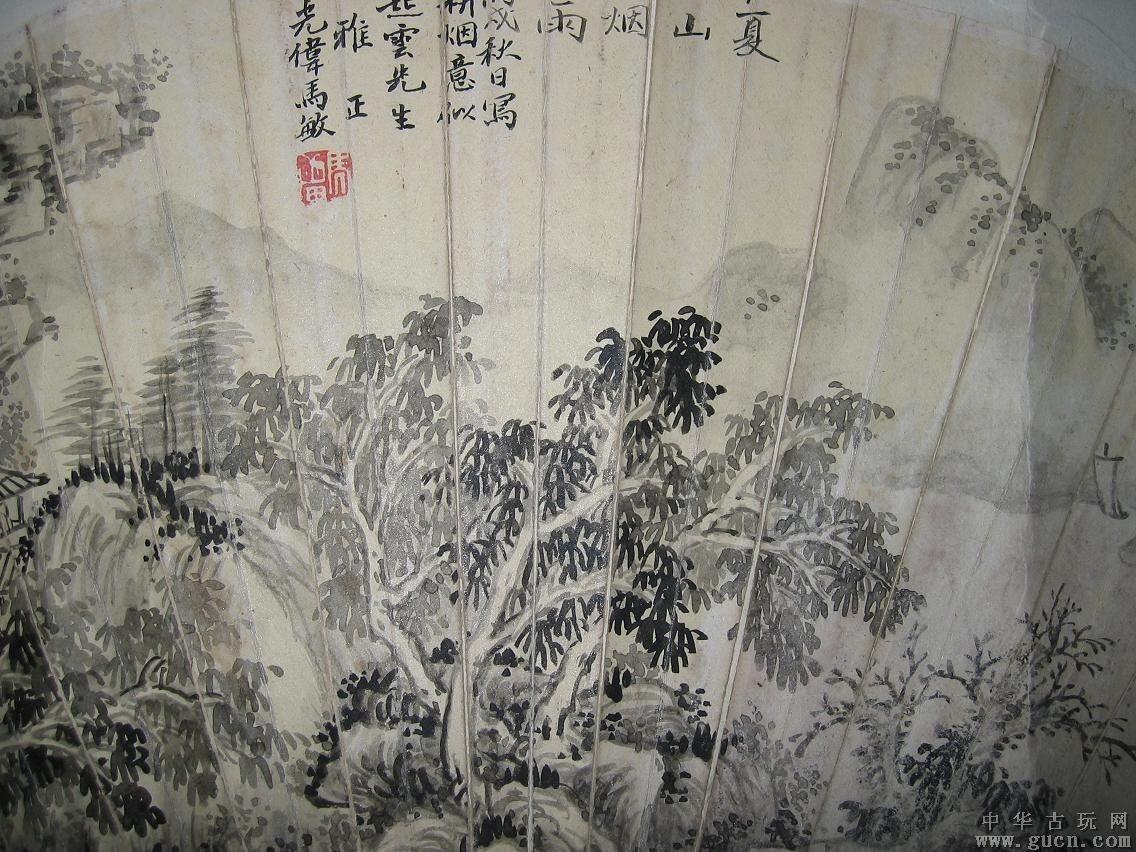 夏山烟雨
戌秋日寫
耕烟意似
雲先生
雅正
偉馬敏
中华古玩网
www.gucn.com